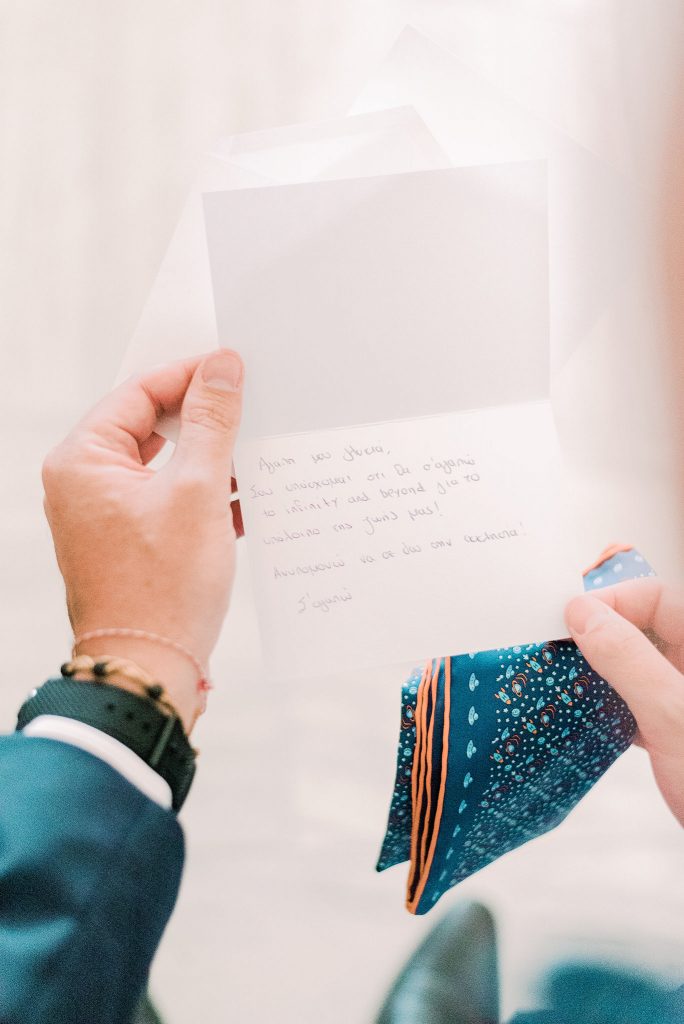 Αγάπη μου γλυκιά,
Σου υπόσχομαι ότι θα σ'αγαπώ
to infinity and beyond για το
υπόλοιπο της ζωής μας!
Ανυπομονώ να σε δω στην εκκλησία!
Σ'αγαπώ